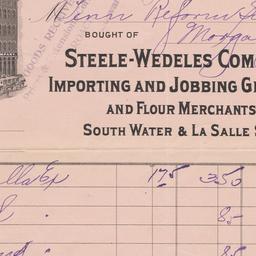 Penn Reform
BOUGHT OF
STEELE-WEDELES COM
IMPORTING AND JOBBING G
AND FLOUR MERCHANTS
SOUTH WATER & LA SALLE S
175 350
85
85